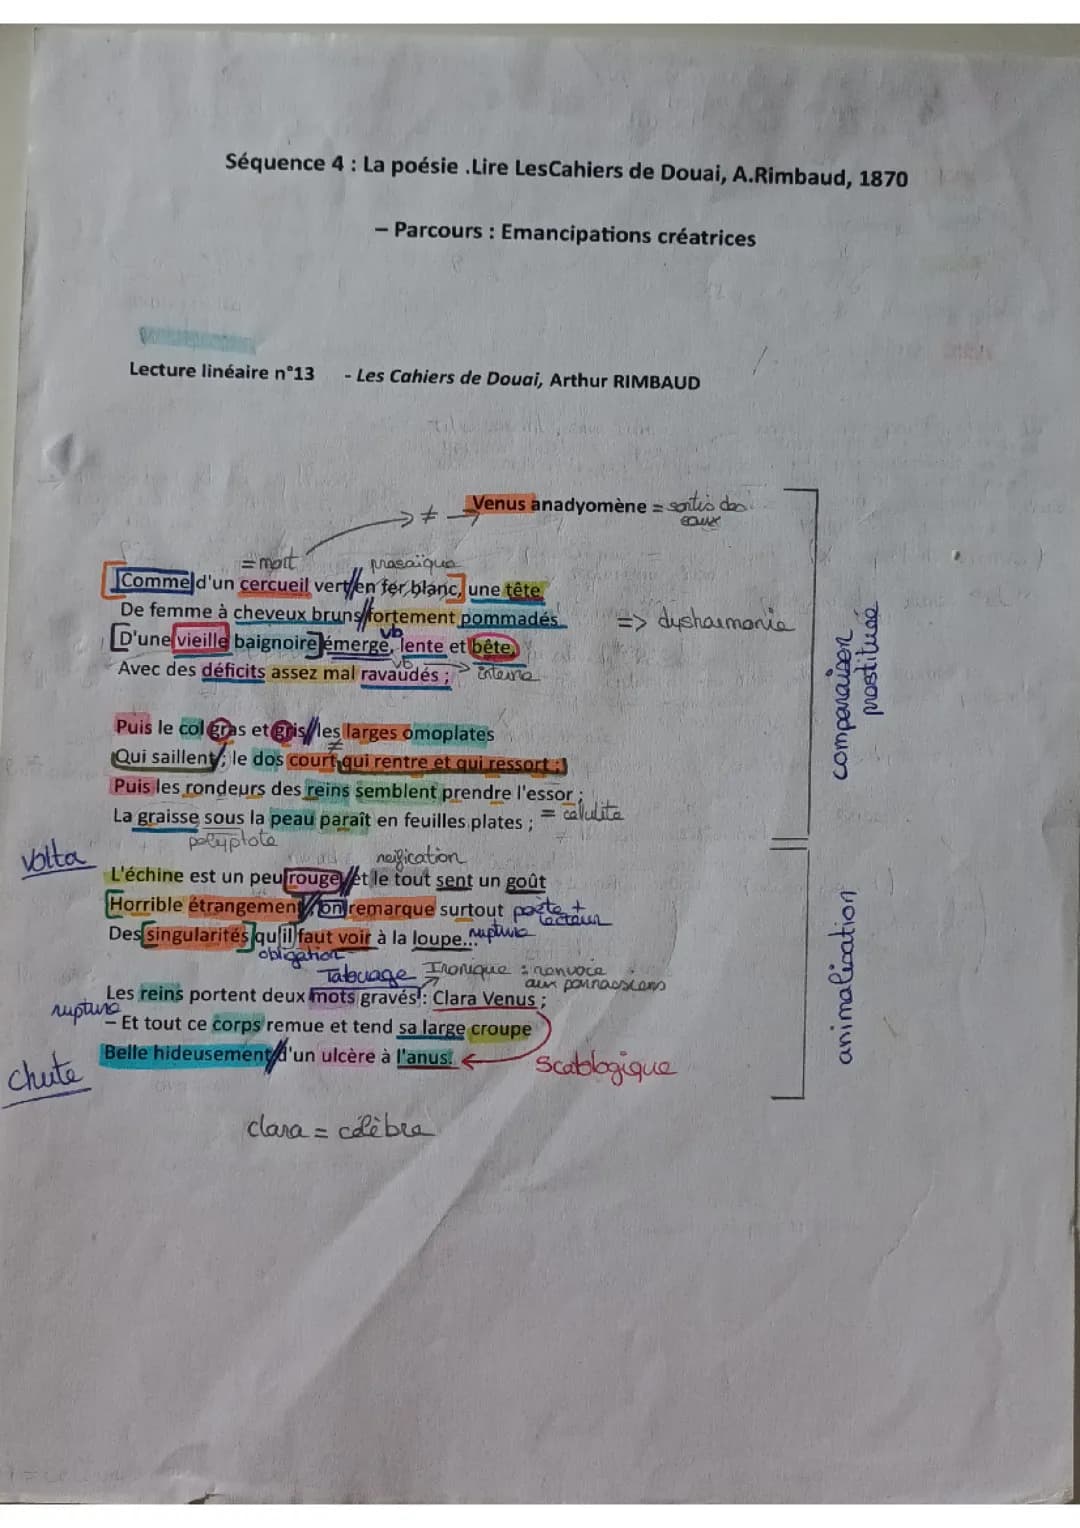 Séquence 4 : La poésie .Lire LesCahiers de Douai, A.Rimbaud, 1870
– Parcours : Emancipations créatrices
Lecture linéaire n°13 - Les Cahiers de Douai, Arthur RIMBAUD
≠ Venus anadyomène = sortis des
eaux
= mort prosaïque
Comme d'un cercueil vert//en fer blanc, une tête
De femme à cheveux bruns//fortement pommadés
=> dysharmonie
vb
D'une vieille baignoire émerge, lente et bête,
vb
Avec des déficits assez mal ravaudés ; interne
Puis le col gras et gris//les larges omoplates
≠
Qui saillent ; le dos court qui rentre et qui ressort ;
Puis les rondeurs des reins semblent prendre l'essor ;
La graisse sous la peau paraît en feuilles plates ; = célulite
polyptote
comparaison
prostituée
volta
réification
L'échine est un peu rouge//et le tout sent un goût
Horrible étrangement//on remarque surtout poète +
lecteur
Des singularités qu'il faut voir à la loupe... rupture
obligation
Tatouage Ironique : renvoie
aux parnassiens
Les reins portent deux mots gravés : Clara Venus ;
rupture
– Et tout ce corps remue et tend sa large croupe
Belle hideusement//d'un ulcère à l'anus.
scatologique
chute
animalisation
clara = célèbre